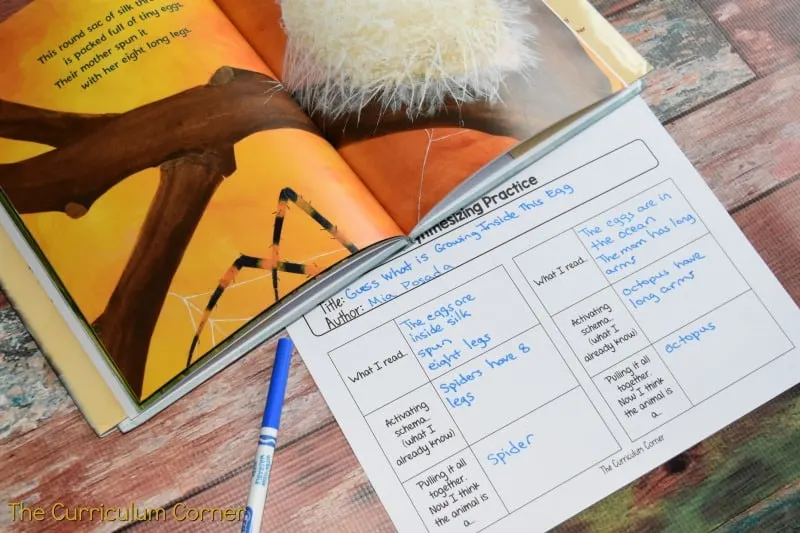 This round sac of silk
is packed full of tiny eggs.
Their mother spun it
with her eight long legs.
Synthesizing Practice
Title: Guess What is Growing Inside This Egg
Author: Mia Posada
What I read...
The eggs are
inside silk
spun
eight legs
Activating
schema
(what I
already know)
Spiders have 8
legs
Pulling it all
together.
Now I think
the animal is
a...
Spider
What I read...
The eggs are in
the ocean
The mom has long
arms
Activating
schema
(what I
already know)
Octopus have
long arms
Pulling it all
together.
Now I think
the animal is
a...
octopus
The Curriculum Corner
The Curriculum Corner